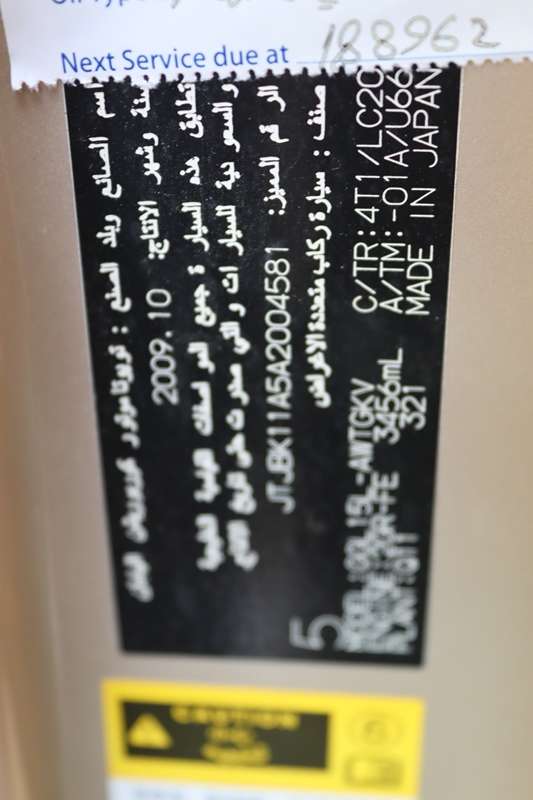 Next Service due at 188962
اسم الصانع وبلد الصنع : تويوتا موتور كوربوريشن اليابان
سنة وشهر الانتاج: 2009.10
تطابق هذه السيارة جميع المواصفات القياسية الخليجية
والسعودية للسيارات والتي صدرت حتى تاريخ الانتاج
الرقم المميز: JTJBK11A5A2004581
صنف : سيارة ركاب متعددة الاغراض
5
MODEL:GGL15L-AWTGKV C/TR:4T1/LC20
ENGINE:2GR-FE 3456mL A/TM:-01A/U66
PLANT:Q11 321 MADE IN JAPAN
CAUTION